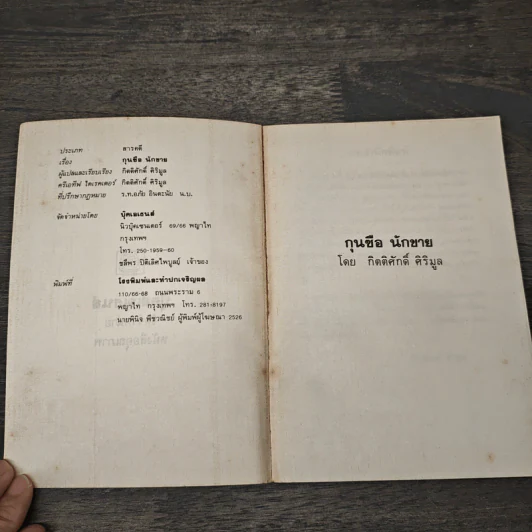 ประเภท สารคดี
เรื่อง กุนซือ นักขาย
ผู้แปลและเรียบเรียง กิตติศักดิ์ ศิริมูล
ครีเอทีฟ ไดเรคเตอร์ กิตติศักดิ์ ศิริมูล
ที่ปรึกษากฎหมาย ร.ท.อภัย อินตะนัย น.บ.
จัดจำหน่ายโดย บุ๊คเอเธนส์
นิวบุ๊คเซนเตอร์ 69/66 พญาไท
กรุงเทพฯ
โทร. 250-1959-60
ชลีพร ปิติเลิศไพบูลย์ เจ้าของ
พิมพ์ที่ โรงพิมพ์และทำปกเจริญผล
110/66-68 ถนนพระราม 6
พญาไท กรุงเทพฯ โทร. 281-8197
นายพินิจ พืชวณิชย์ ผู้พิมพ์ผู้โฆษณา 2526
กุนซือ นักขาย
โดย กิตติศักดิ์ ศิริมูล